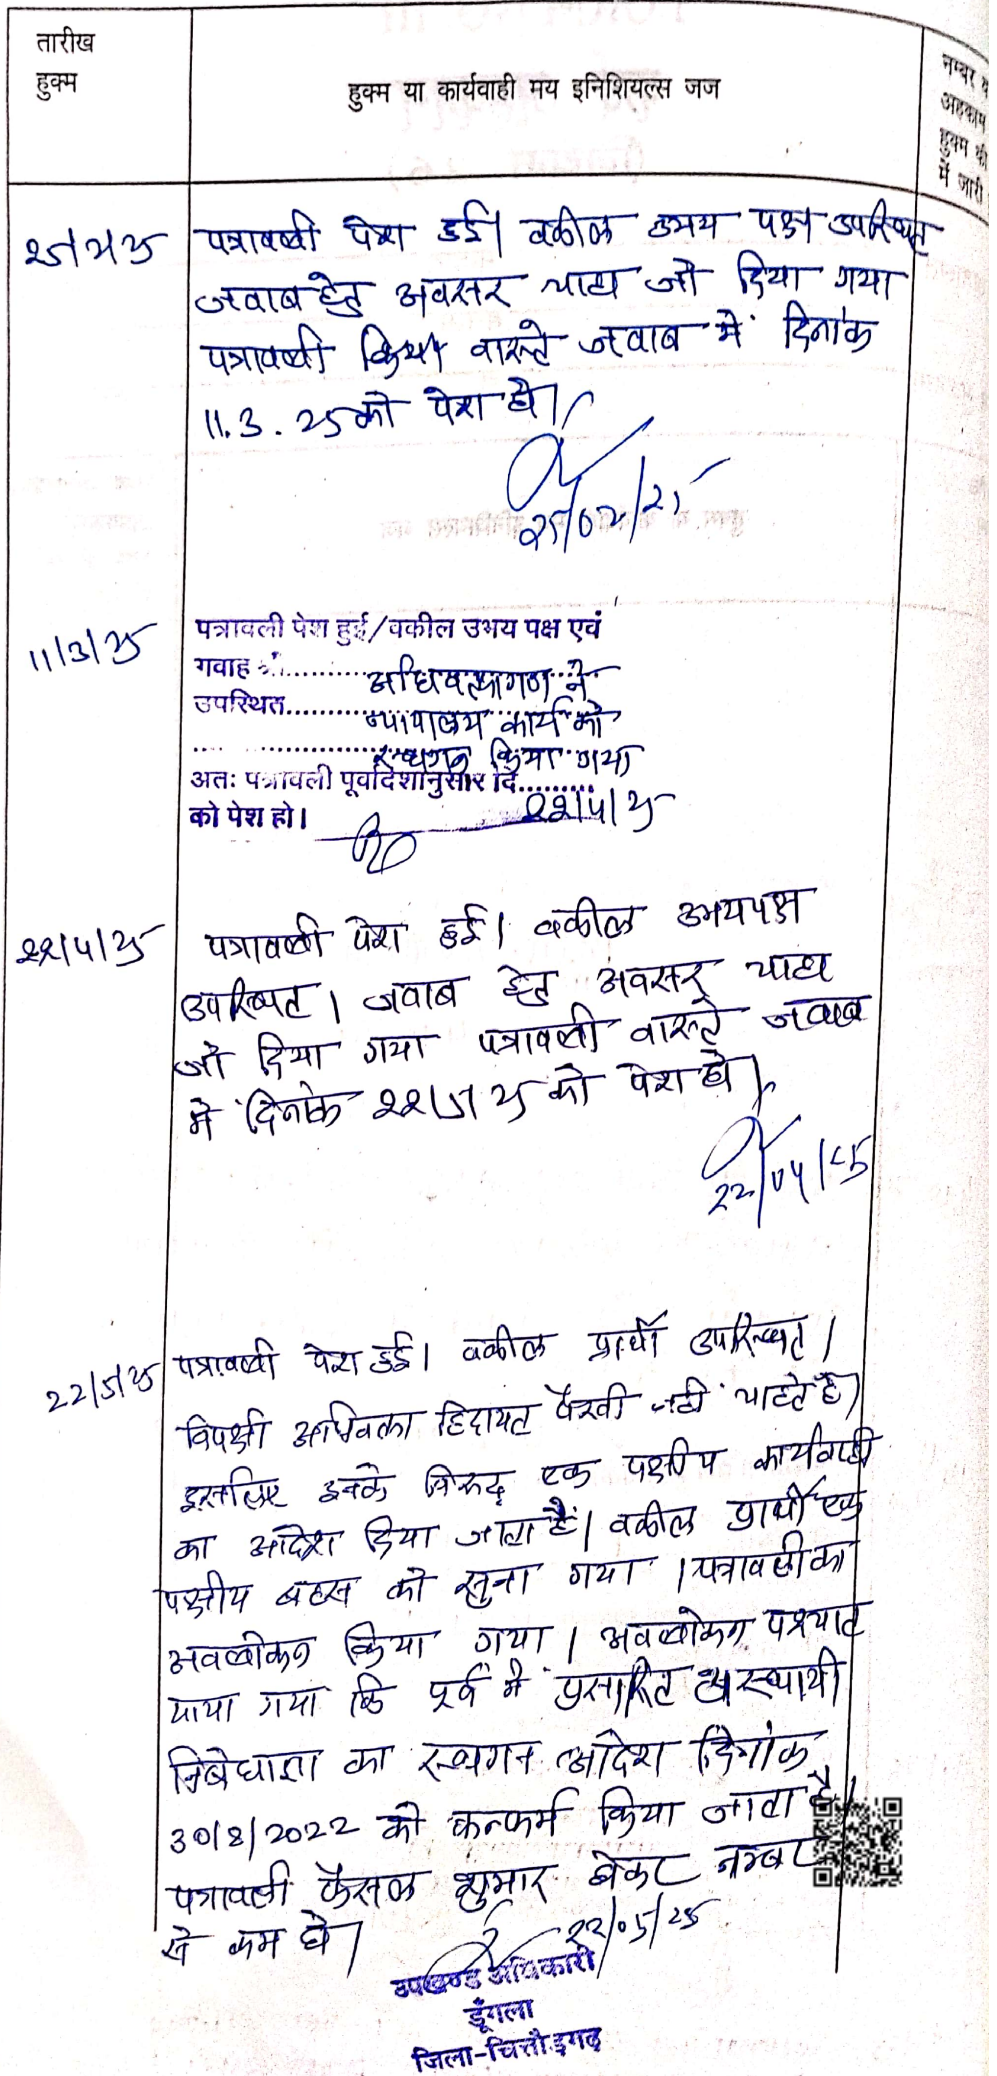 तारीख
हुक्म
हुक्म या कार्यवाही मय इनिशियल्स जज
नम्बर व
अहकाम
हुक्म की
में जारी
25/2/25 पत्रावली पेश हुई। वकील उभय पक्ष उपस्थित
जवाब हेतु अवसर चाहा जो दिया गया
पत्रावली वास्ते जवाब में दिनांक
11.3.25 को पेश हो।
25/02/25
11/3/25 पत्रावली पेश हुई/वकील उभय पक्ष एवं
गवाह श्री............ अधिवक्तागण ने
उपस्थित............ न्यायालय कार्य को
स्थगन किया गया
अतः पत्रावली पूर्वादेशानुसार दि..........
को पेश हो। 22/4/25
22/4/25 पत्रावली पेश हुई। वकील उभयपक्ष
उपस्थित। जवाब हेतु अवसर चाहा
जो दिया गया पत्रावली वास्ते जवाब
में दिनांक 22/5/25 को पेश हो।
22/04/25
22/5/25 पत्रावली पेश हुई। वकील प्रार्थी उपस्थित।
विपक्षी अधिवक्ता हिदायत पैरवी नही चाहते है।
इसलिए इनके विरूद्ध एक पक्षीय कार्यवाही
का आदेश दिया जाता है। वकील प्रार्थी एक
पक्षीय बहस को सुना गया। पत्रावली का
अवलोकन किया गया। अवलोकन पश्चात
पाया गया कि पूर्व में प्रसारित अस्थायी
निषेधाज्ञा का स्थगन आदेश दिनांक
30/8/2022 को कन्फर्म किया जाता है।
पत्रावली फैसल शुमार होकर नम्बर
से कम हो।
22/05/25
उपखण्ड अधिकारी
डूँगला
जिला-चित्तौड़गढ़